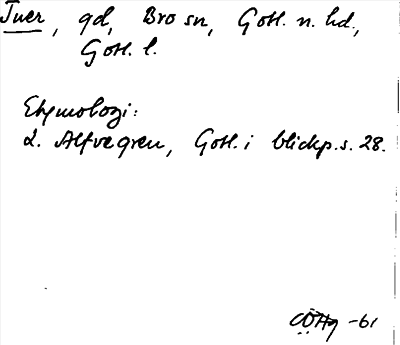 Tuer, gd, Bro sn, Gotl. n. hd.,
Gotl. l.
Etymologi:
L. Alfvegren, Gotl. i blickp. s. 28.
-61